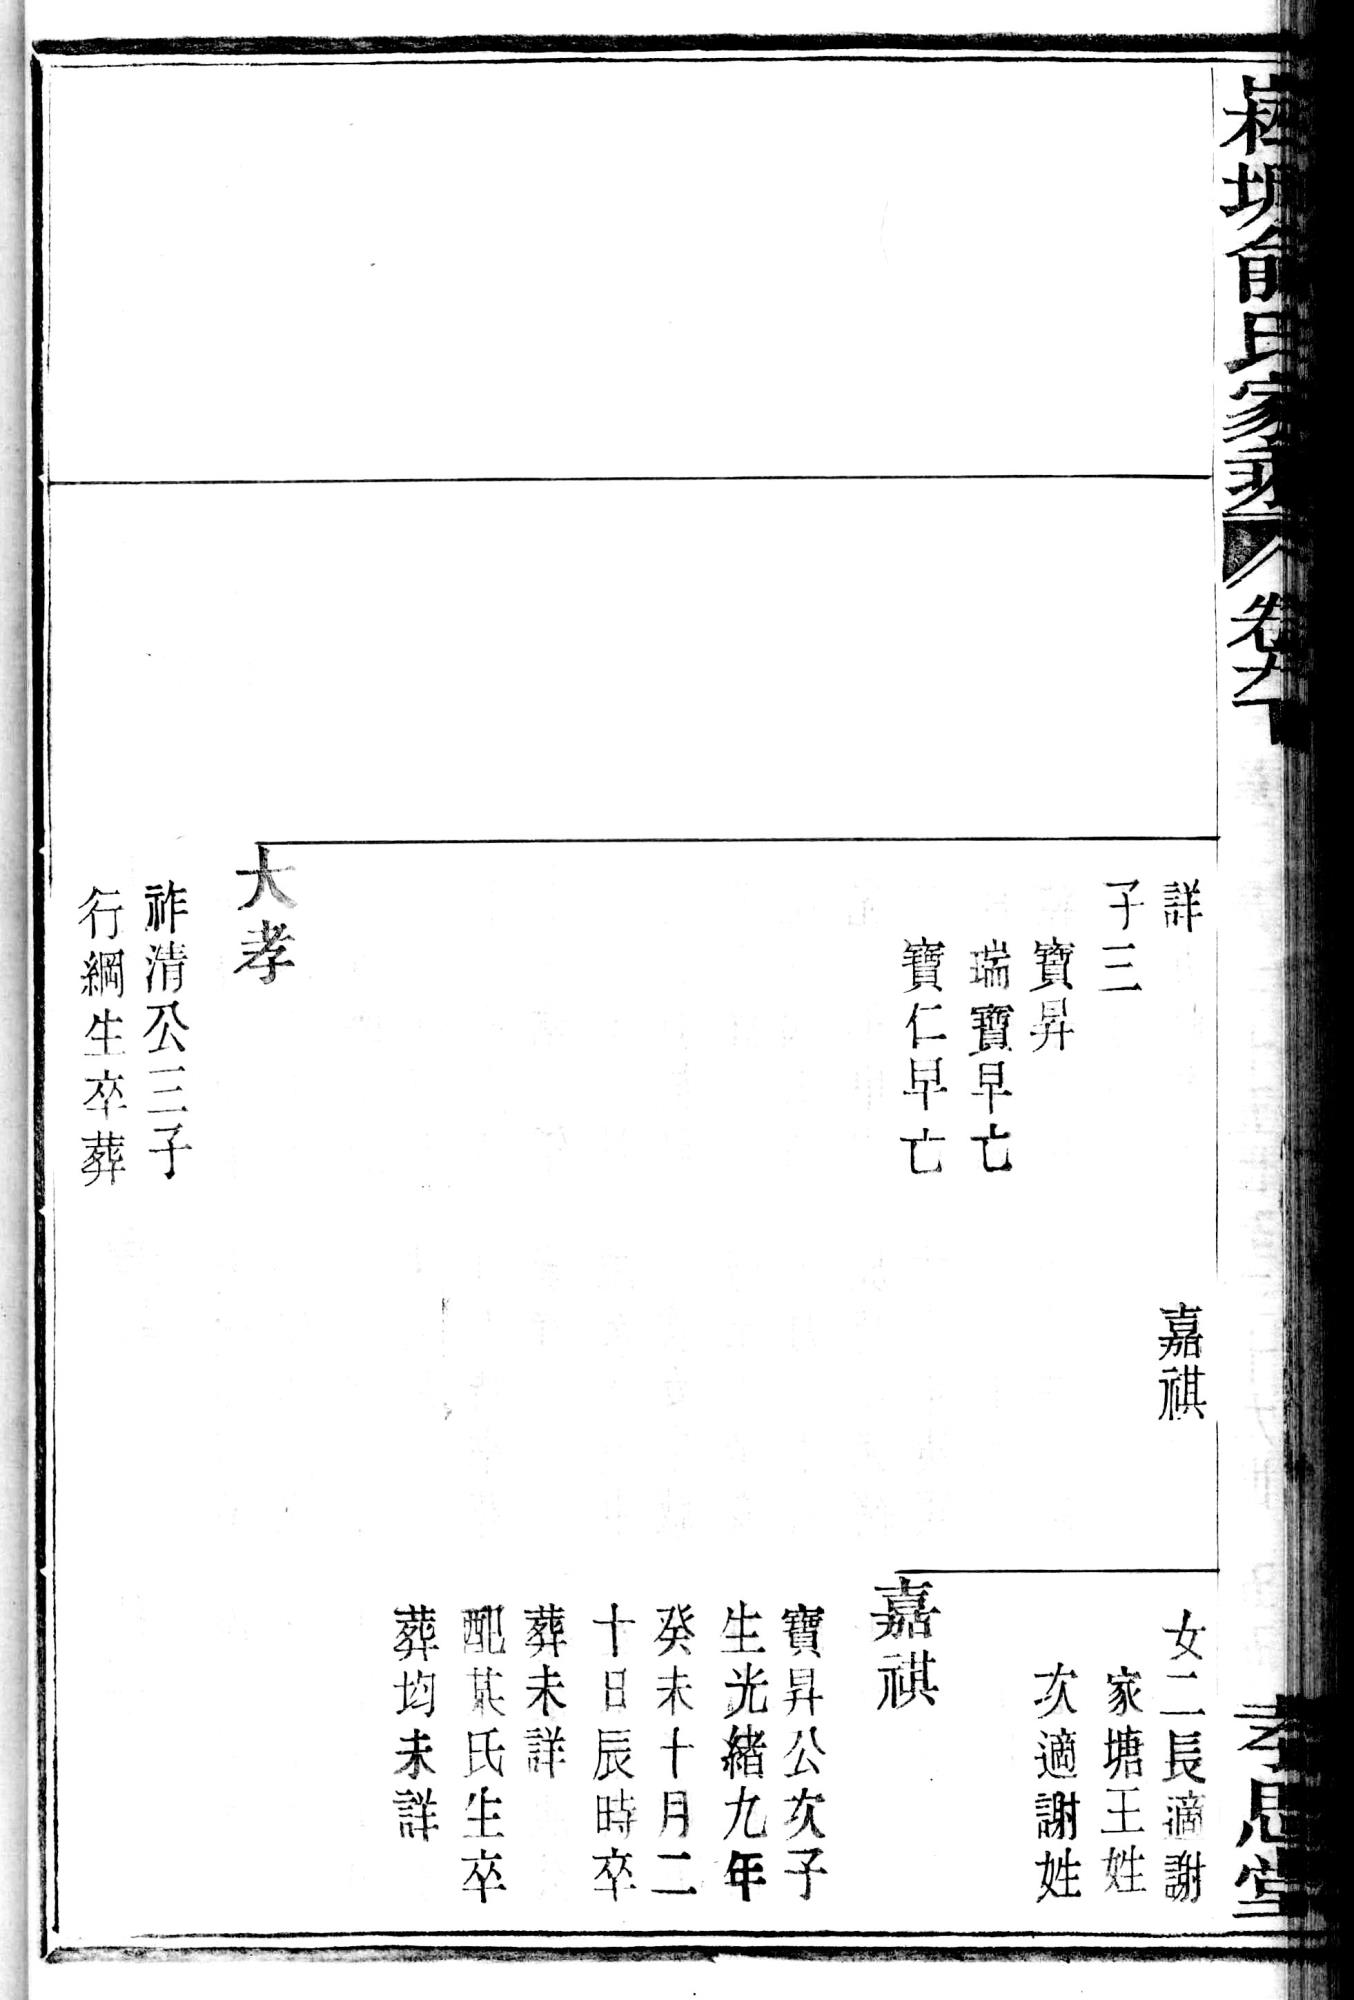 俞氏家乘
卷九下
孝思堂
詳
子三
寶昇
瑞寶早亡
寶仁早亡
嘉祺
大孝
祚清公三子
行綱生卒葬
女二長適謝
家塘王姓
次適謝姓
嘉祺
寶昇公次子
生光緒九年
癸未十月二
十日辰時卒
葬未詳
配某氏生卒
葬均未詳